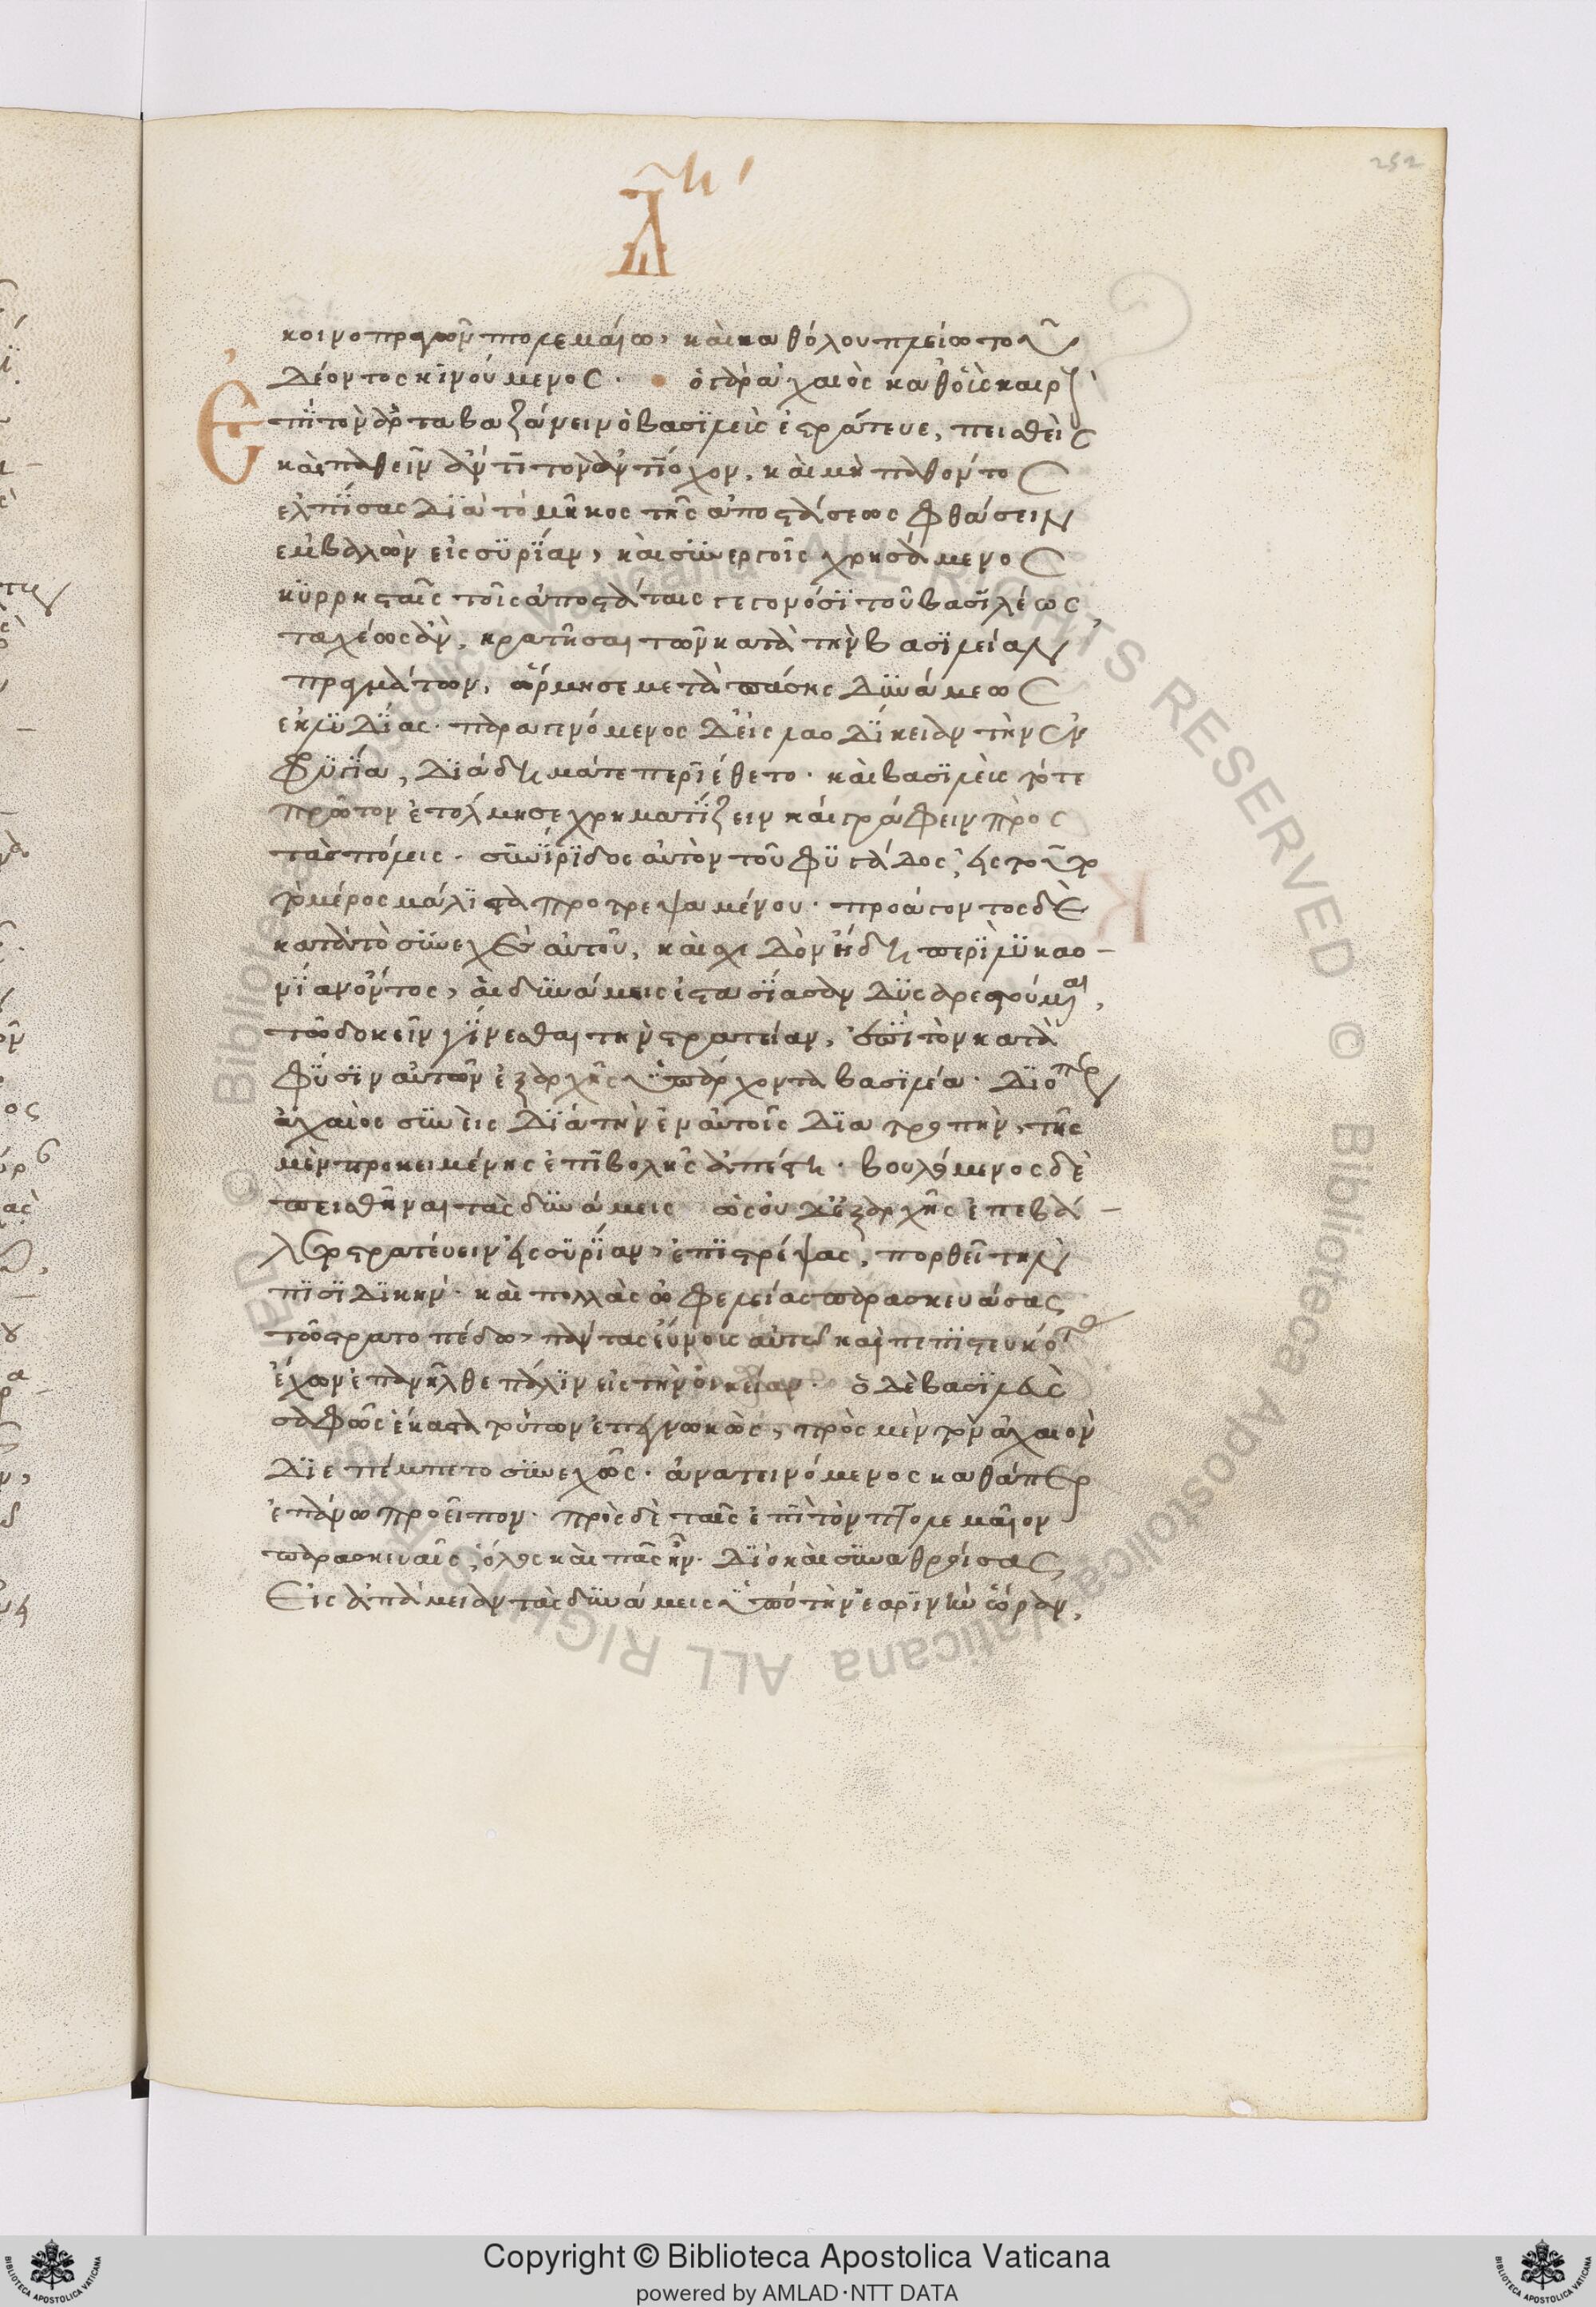 Δ̅η′
252
κοινοπραγῶν πτολεμαίω, καὶ καθόλου πλείω τοῦ
δέοντος κινούμενος. ὁ γὰρ ἀχαιὸς καθ᾽ οἷς καιρ
Ἐπὶ τὸν ἀρταβαζάνειν ὁ βασιλεὺς ἐστράτευε, πεισθεὶς
καὶ παθεῖν ἄν τι τὸν ἀντίοχον, καὶ μὴ παθόντος
ελπίσας διὰ τὸ μῆκος τῆς ἀποστάσεως φθάσειν
εμβαλὼν εἰς συρίαν, καὶ συνεργοῖς χρησάμενος
κυρρησταῖς τοῖς ἀποστάταις γεγονόσι τοῦ βασιλέως
ταχέως ἂν, κρατῆσαι τῶν κατὰ τὴν βασιλείαν,
πραγμάτων, ὥρμησε μετὰ πάσης δυνάμεως
εκ λυδίας. παραγενόμενος δ᾽ εἰς λαοδίκειαν τὴν ἐν
φυγία, διάδημά τε περιέθετο. καὶ βασιλεὺς τότε
πρῶτον ἐτόλμησε χρηματίζειν καὶ γράφειν πρὸς
τὰς πόλεις. συνίριδος αὐτὸν τοῦ φυγάδος, εἰς τοῦτο
τὸ μέρος μάλιστα προτρεψαμένου. προάγοντος δὲ
κατὰ τὸ συνεχὲς αὐτοῦ, καὶ σχεδὸν ἤδη περὶ λυκαο-
νίαν ὄντος, αἱ δυνάμεις ἐστασίασαν δυσαρεστούμεναι,
τῶ δοκεῖν γίνεσθαι τὴν στρατείαν, ἐπὶ τὸν κατὰ
φύσιν αὐτῶν ἐξ ἀρχῆς ὑπάρχοντα βασιλέα. διόπερ
ἀχαιὸς συνεὶς διὰ τὴν ἐν αὐτοῖς διατροπὴν, τῆς
μὲν προκειμένης ἐπιβολῆς ἀπέστη. βουλόμενος δὲ
πεισθῆναι τὰς δυνάμεις ὡς οὐδ᾽ ἐξ ἀρχῆς ἐπεβά-
λετο στρατεύειν εἰς συρίαν, ἐπιστρέψας, πορθεῖ τὴν
πισιδικήν. καὶ πολλὰς ὠφελείας παρασκευάσας
τῶ στρατοπέδω, πάντας εὔνοις αὐτῶ καὶ πεπιστευκότας
ἔχων ἐπανῆλθε πάλιν εἰς τὴν οἰκείαν. ὁ δὲ βασιλεὺς
σαφῶς ἕκαστα τούτων ἐπεγνωκὼς, πρὸς μὲν τὸν ἀχαιὸν
διεπέμπετο συνεχῶς. ἀνατεινόμενος καθάπερ
ἐπάνω προεῖπον. πρὸς δὲ ταῖς ἐπὶ τὸν πτολεμαῖον
παρασκευαῖς, ὅλος καὶ πᾶς ἦν. διὸ καὶ συναθροίσας
Εἰς ἀπάμειαν τὰς δυνάμεις ὑπὸ τὴν ἐαρινὴν ὥραν,